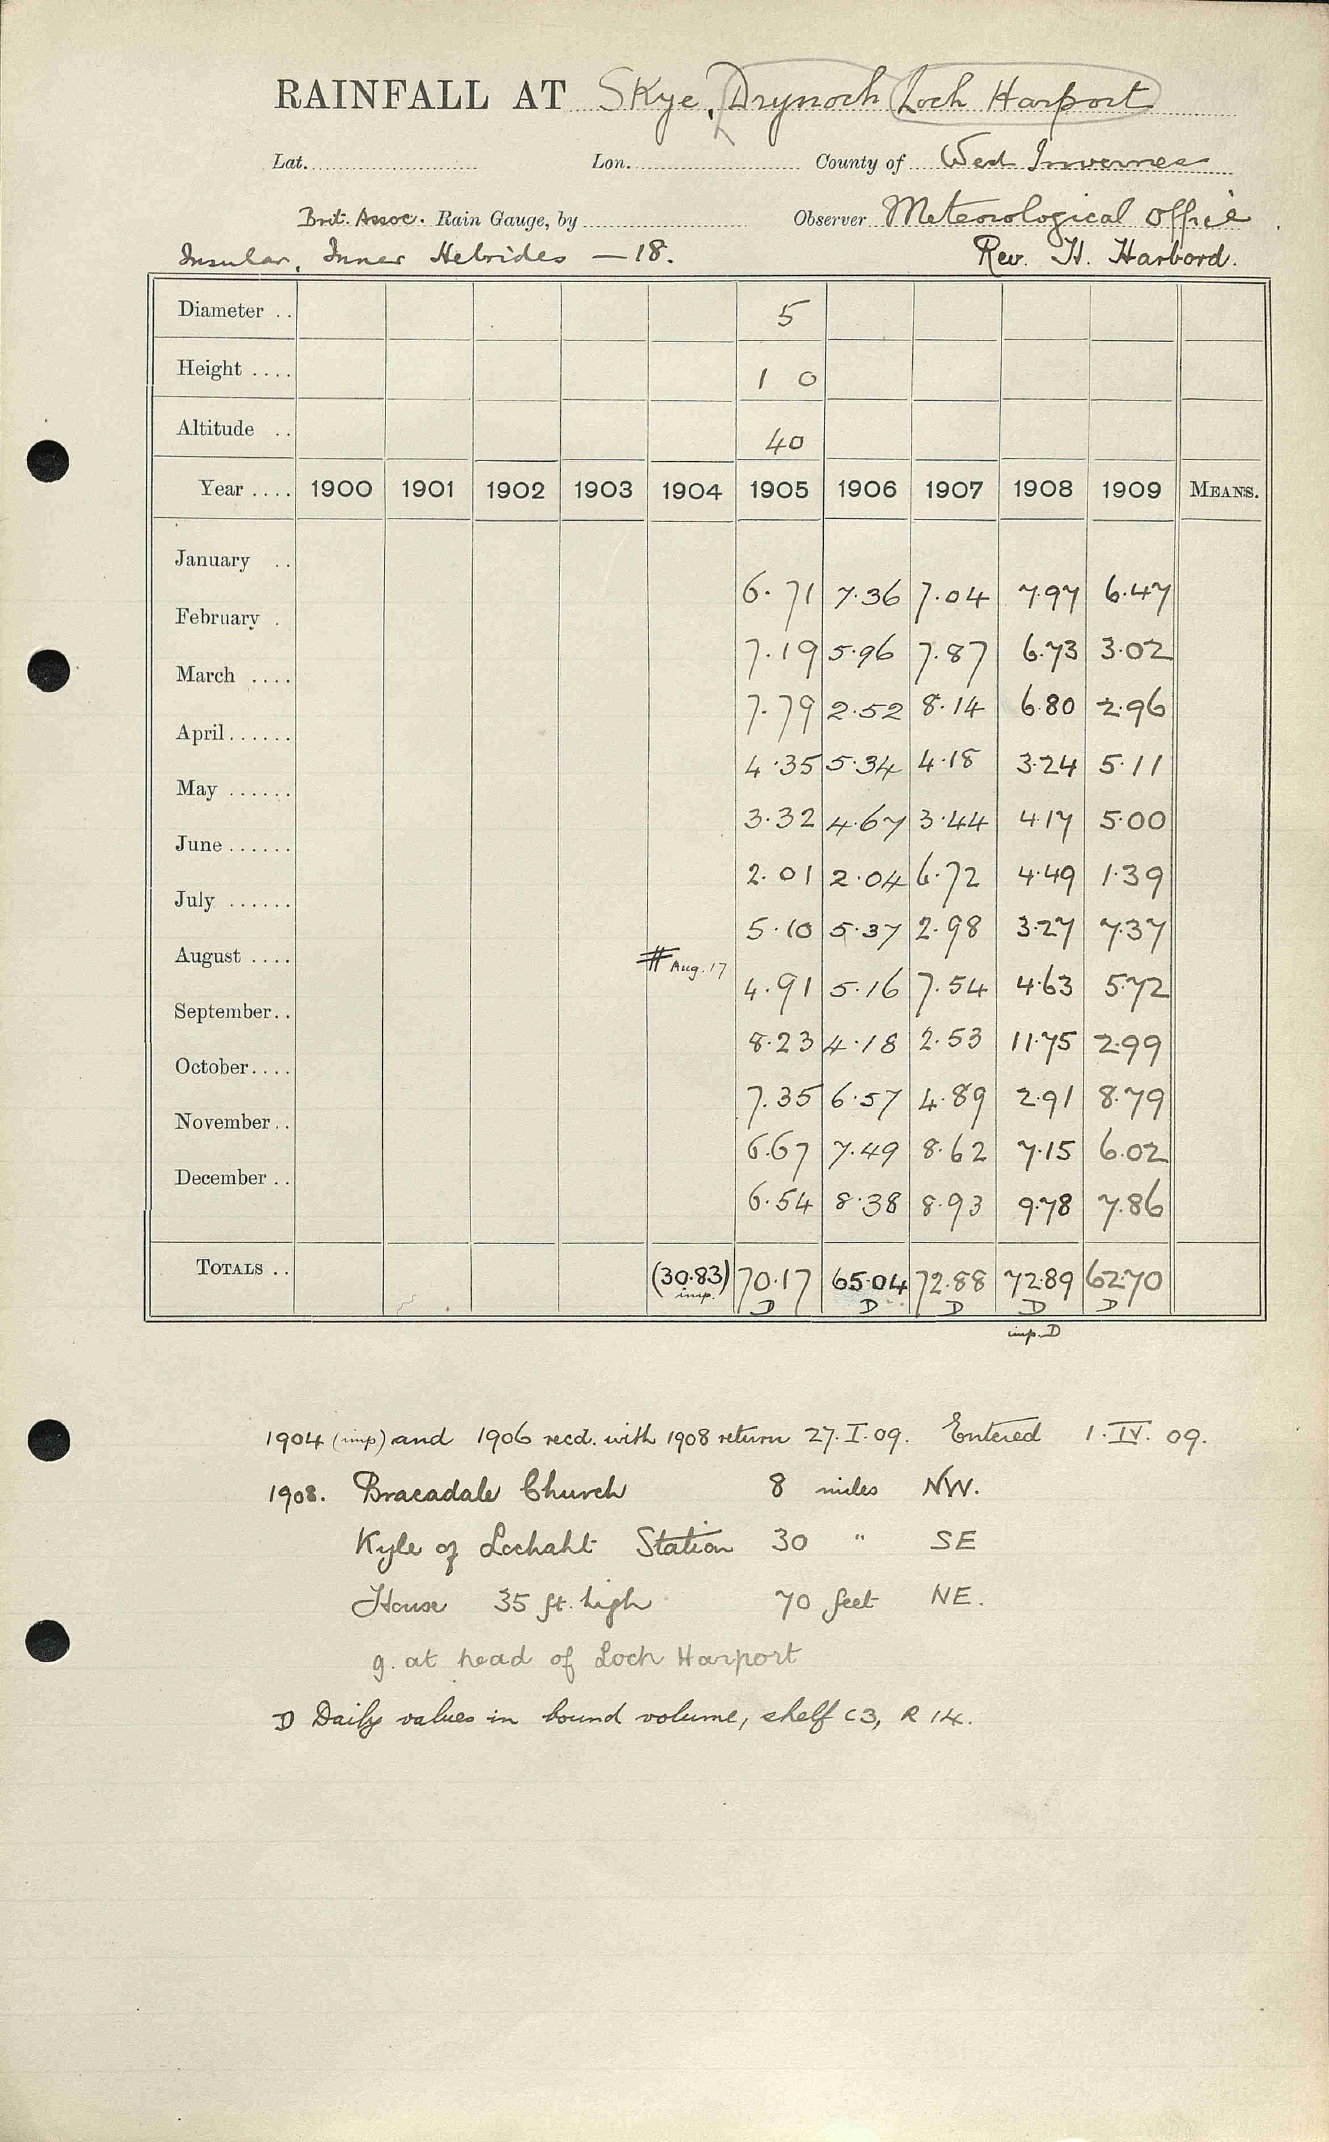 RAINFALL AT Skye, Drynoch Loch Harport
Lat. Lon. County of West Inverness
Brit. Assoc. Rain Gauge, by Observer Meteorological Office
Insular, Inner Hebrides — 18. Rev. H. Harbord.
Diameter .. 5
Height .... 1 0
Altitude .. 40
Year .... 1900 1901 1902 1903 1904 1905 1906 1907 1908 1909 MEANS.
January .. 6.71 7.36 7.04 7.97 6.47
February . 7.19 5.96 7.87 6.73 3.02
March .... 7.79 2.52 8.14 6.80 2.96
April ...... 4.35 5.34 4.18 3.24 5.11
May ...... 3.32 4.67 3.44 4.17 5.00
June ...... 2.01 2.04 6.72 4.49 1.39
July ...... 5.10 5.37 2.98 3.27 7.37
August .... # Aug. 17 4.91 5.16 7.54 4.63 5.72
September.. 8.23 4.18 2.53 11.75 2.99
October.... 7.35 6.57 4.89 2.91 8.79
November.. 6.67 7.49 8.62 7.15 6.02
December .. 6.54 8.38 8.93 9.78 7.86
TOTALS .. (30.83) 70.17 65.04 72.88 72.89 62.70
imp. D D D D D
imp. D
1904 (imp) and 1906 recd. with 1908 return 27.I.09. Entered 1.IV.09.
1908. Bracadale Church 8 miles NW.
Kyle of Lochalsh Station 30 " SE
House 35 ft. high 70 feet NE.
g. at head of Loch Harport
D Daily values in bound volume, shelf C3, R 14.